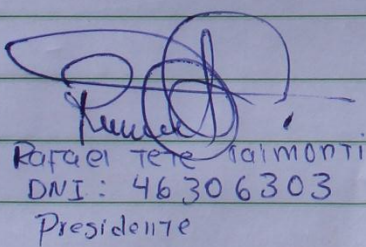 Rafael Tete Taimonti
DNI: 46306303
Presidente